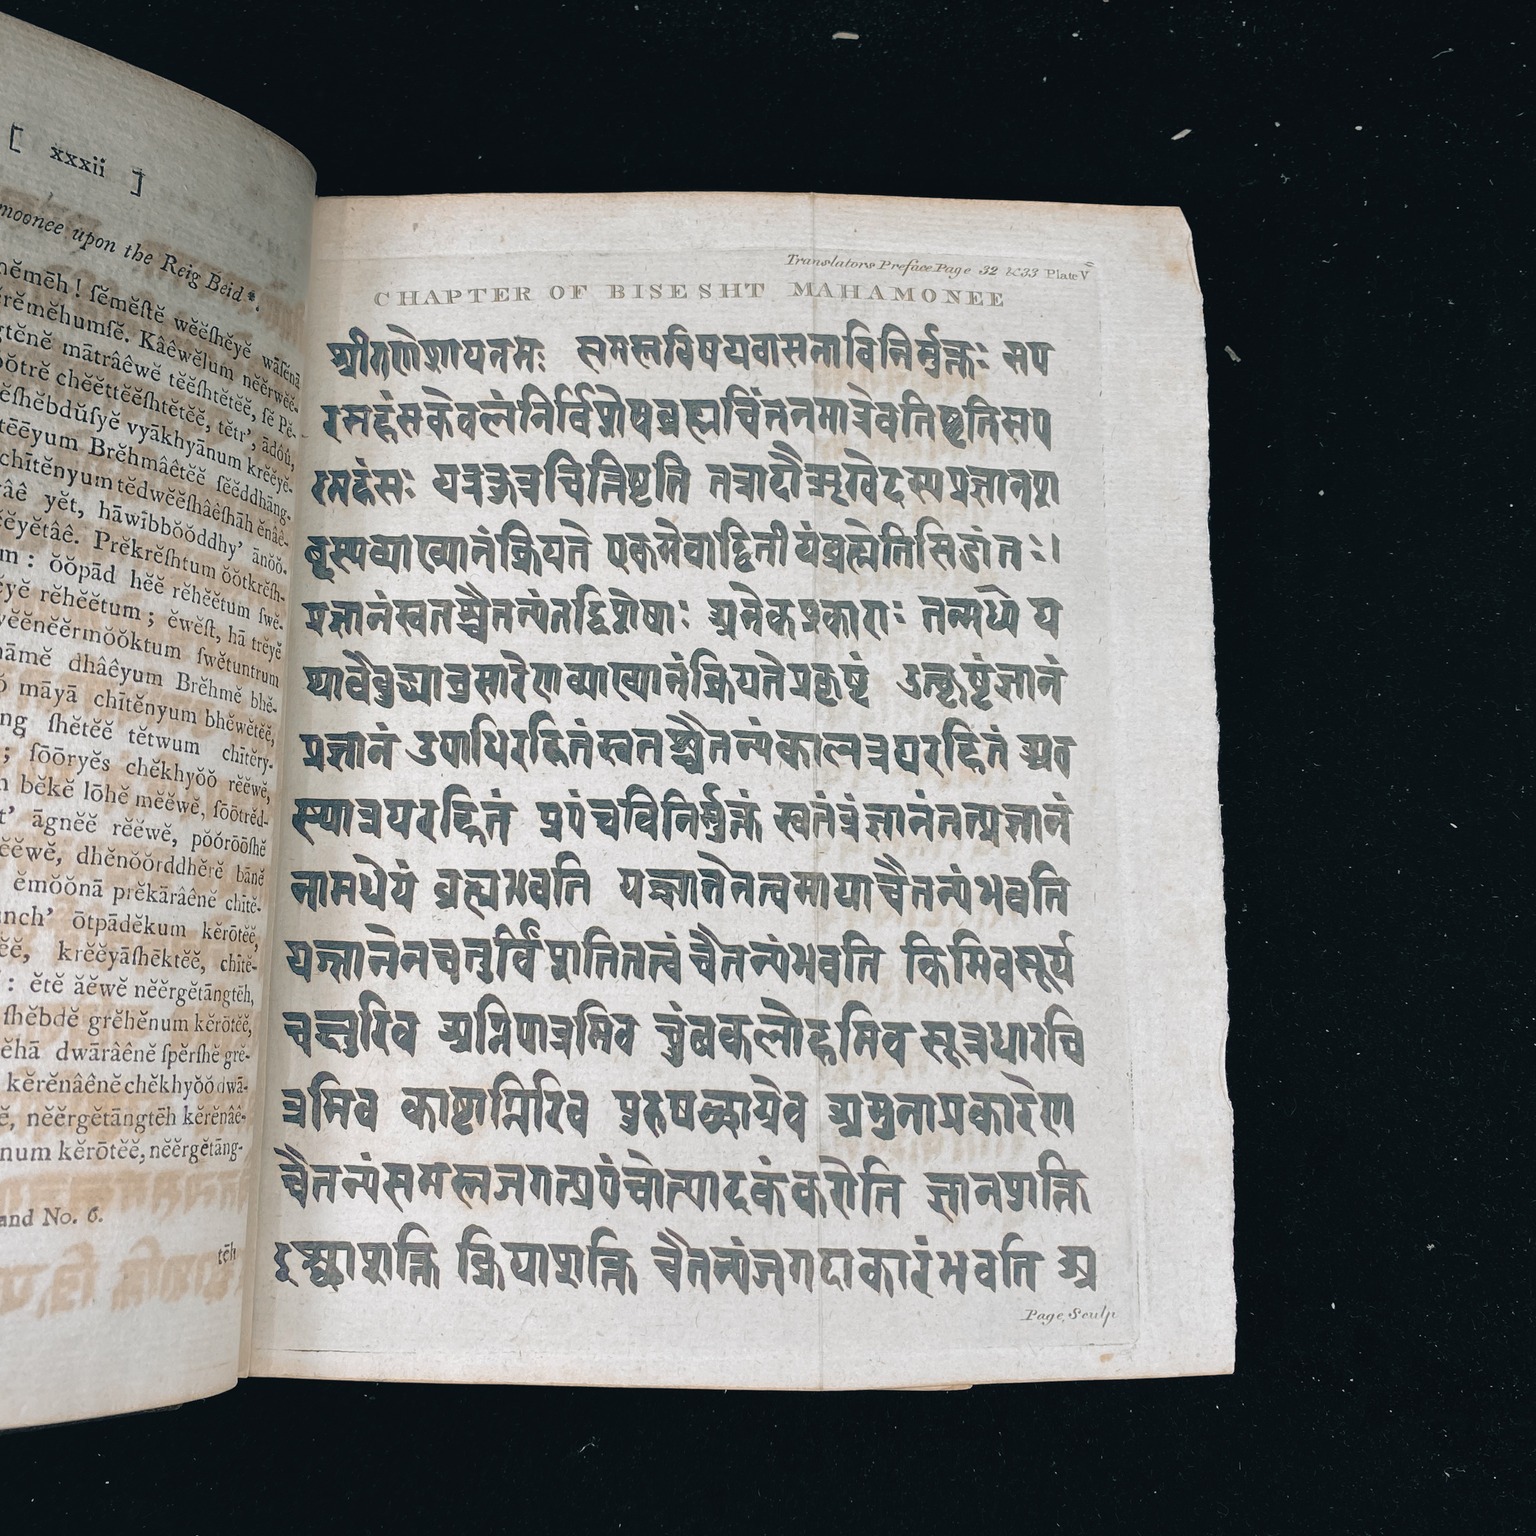 [ xxxii ]
moonee upon the Reig Beid *.
nĕmēh! ſĕmĕſtĕ wĕĕſhĕyĕ wāſĕnā
rĕmĕhumſĕ. Kâêwĕlum nĕĕrwĕĕ-
gtĕnĕ mātrâêwĕ tĕĕſhtĕtĕĕ, ſĕ Pĕ-
ŏtrĕ chĕĕttĕĕſhtĕtĕĕ, tĕtr', ādôû,
ĕſhĕbdŭſyĕ vyākhyānum krĕĕyĕ-
tĕĕyum Brĕhmâêtĕĕ ſĕĕddhāng-
chītĕnyum tĕdwĕĕſhâêſhāh ĕnâê-
âê yĕt, hāwībbŏŏddhy' ānŏŏ-
ĕĕyĕtâê. Prĕkrĕſhtum ŏŏtkrĕſh-
m : ŏŏpād hĕĕ rĕhĕĕtum ſwĕ-
yĕ rĕhĕĕtum ; ĕwĕſt, hā trĕyĕ
wĕĕnĕĕrmŏŏktum ſwĕtuntrum
nāmĕ dhâêyum Brĕhmĕ bhĕ-
māyā chītĕnyum bhĕwĕtĕĕ,
ng ſhĕtĕĕ tĕtwum chītĕry-
; ſōōryĕs chĕkhyŏŏ rĕĕwĕ,
bĕkĕ lōhĕ mĕĕwĕ, ſōōtrĕd-
t' āgnĕĕ rĕĕwĕ, pŏórōōſhĕ
ĕĕwĕ, dhĕnŏŏrddhĕrĕ bānĕ
ĕmŏŏnā prĕkārâênĕ chītĕ-
nch' ōtpādĕkum kĕrōtĕĕ,
ĕĕ, krĕĕyāſhĕktĕĕ, chītĕ-
: ĕtĕ ăĕwĕ nĕĕrgĕtāngtĕh,
ſhĕbdĕ grĕhĕnum kĕrōtĕĕ,
ĕhā dwārâênĕ ſpĕrſhĕ grĕ-
kĕrĕnâênĕ chĕkhyŏŏ dwā-
ĕ, nĕĕrgĕtāngtĕh kĕrĕnâê-
num kĕrōtĕĕ, nĕĕrgĕtāng-
and No. 6.
tĕh
Translators Preface Page 32 &33 Plate V
CHAPTER OF BISESHT MAHAMONEE
श्रीगणेशायनमः समस्तविषयवासनाविनिर्मुक्तः सप
रमहंसकेवलंनिर्विशेषब्रह्मचिंतनमात्रेवतिष्ठतिसप
रमहंसः यत्रकुत्रचित्तिष्ठति तत्रादौऋग्वेदस्यप्रज्ञानश
ब्दस्यव्याख्यानंक्रियते एकमेवाद्वितीयंब्रह्मेतिसिद्धांतः।
प्रज्ञानंस्वतश्चैतन्यंतद्विशेषाः अनेकप्रकाराः तन्मध्ये य
थावैबुद्ध्यानुसारेणव्याख्यानंक्रियतेप्रकृष्टं उत्कृष्टंज्ञानं
प्रज्ञानं उपाधिरहितंस्वतश्चैतन्यंकालत्रयरहितं अव
स्थात्रयरहितं प्रपंचविनिर्मुक्तं स्वतंत्रंज्ञानंतत्प्रज्ञानं
नामधेयं ब्रह्मभवति यज्ज्ञानेनत्वमायाचैतन्यंभवति
यज्ज्ञानेनचतुर्विंशतितत्वं चैतन्यंभवति किमिवसूर्य
चक्षुरिव अग्निपात्रमिव चुंबकलोहमिव सूत्रधारचि
त्रमिव काष्टाग्निरिव पुरुषच्छायेव अमुनाप्रकारेण
चैतन्यंसमस्तजगत्प्रपंचोत्पादकंकरोति ज्ञानशक्ति
इच्छाशक्ति क्रियाशक्ति चैतन्यंजगदाकारंभवति अ
Page Sculp